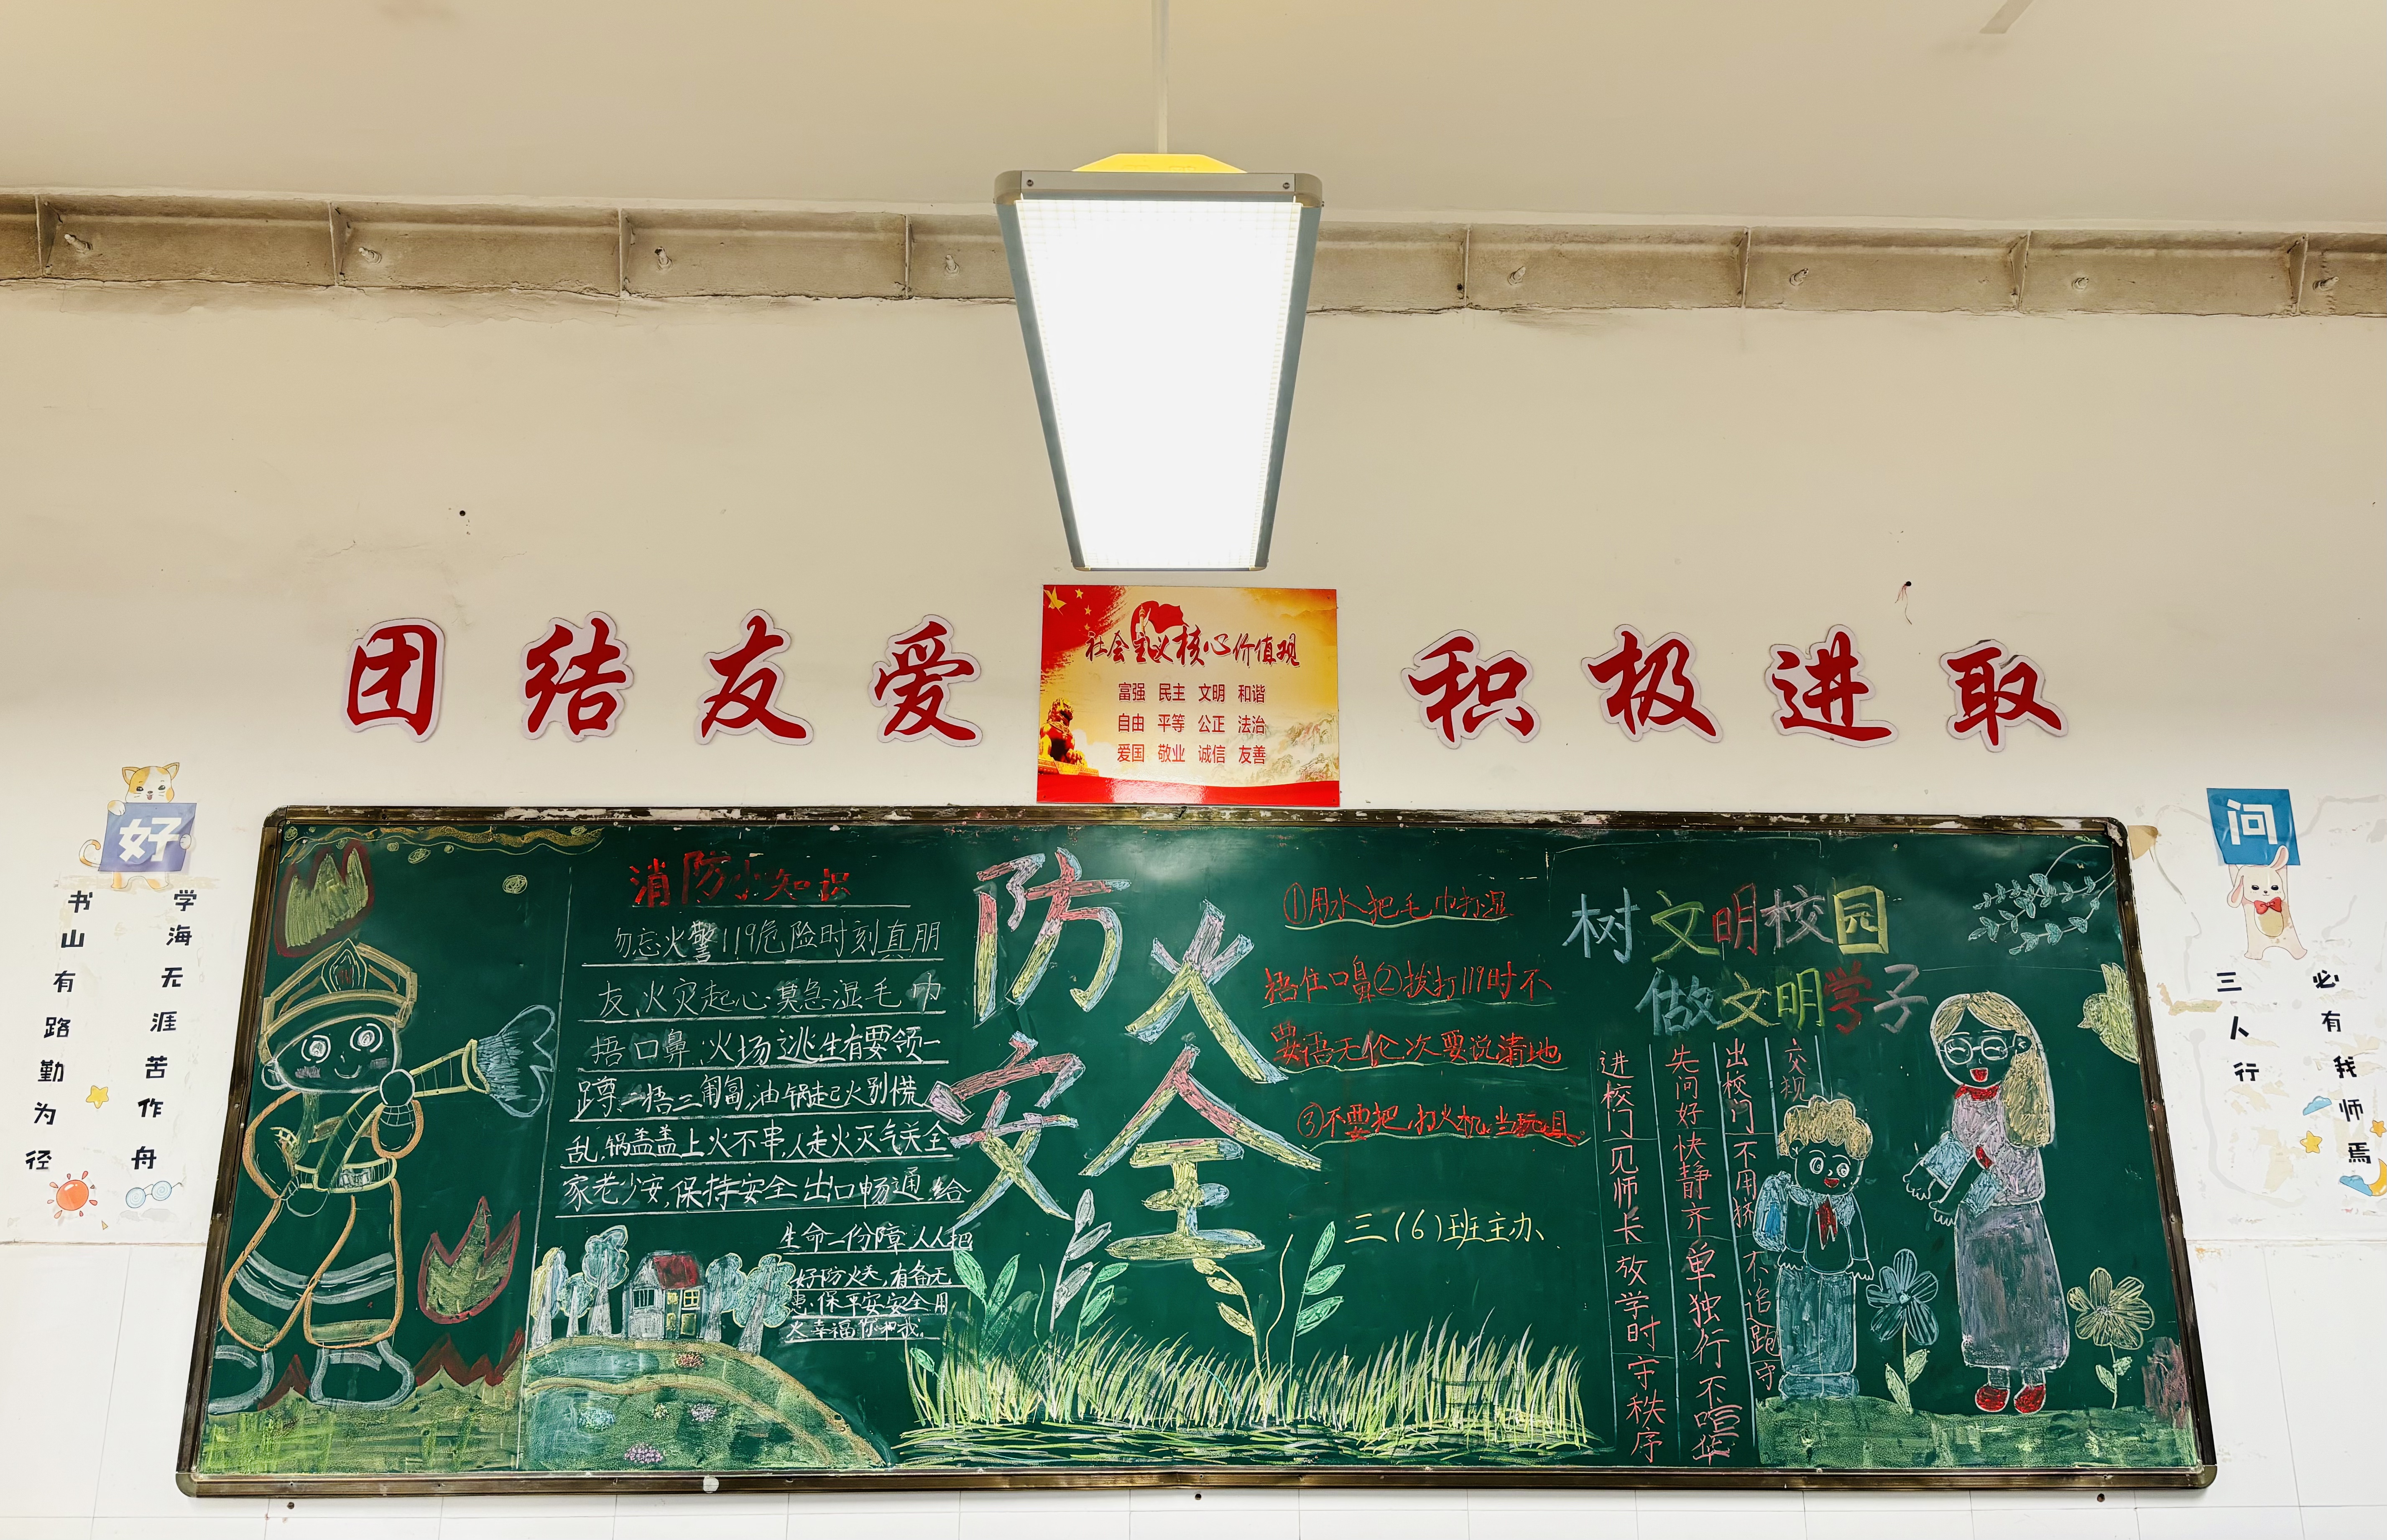 团结友爱
社会主义核心价值观
富强 民主 文明 和谐
自由 平等 公正 法治
爱国 敬业 诚信 友善
积极进取
好
学海无涯苦作舟
书山有路勤为径
消防小知识
勿忘火警119危险时刻真朋
友,火灾起心莫急湿毛巾
捂口鼻,火场逃生有要领一
蹲二捂三匍匐,油锅起火别慌
乱,锅盖盖上火不串,人走火灭气关全
家老少安,保持安全出口畅通,给
生命一份障,人人把
好防火关,有备无
患,保平安安全用
火幸福你和我.
防火
安全
①用水把毛巾打湿
捂住口鼻②拨打119时不
要语无伦次要说清地
③不要把,打火机,当玩具。
三(6)班主办
树文明校园
做文明学子
进校门见师长放学时守秩序
先问好快静齐单独行不喧华
出校门不用挤不追跑守
交规
问
三人行
必有我师焉